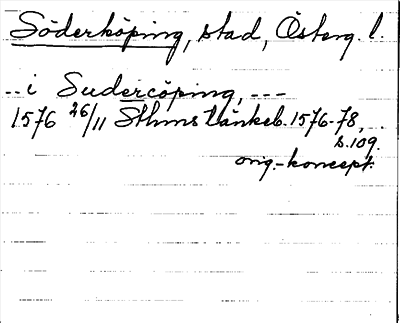 Söderköping, stad, Österg. l.
.. i Sudercöping, ---
1576 26/11 Sthms tänkeb. 1576-78,
s. 109.
orig.-koncept.